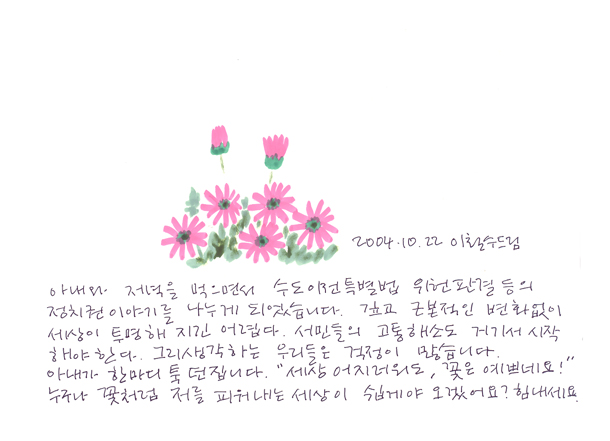 2004.10.22 이철수드림
아내와 저녁을 먹으면서 수도이전특별법 위헌판결등의
정치권이야기를 나누게 되었습니다. 깊고 근본적인 변화없이
세상이 투명해 지긴 어렵다. 서민들의 고통해소도 거기서 시작
해야한다. 그리생각하는 우리들은 걱정이 많습니다.
아내가 한마디 툭 던집니다. "세상 어지러워도, 꽃은 예쁘네요!"
누구나 꽃처럼 저를 피워내는 세상이 쉽게야 오겠어요? 힘내세요.